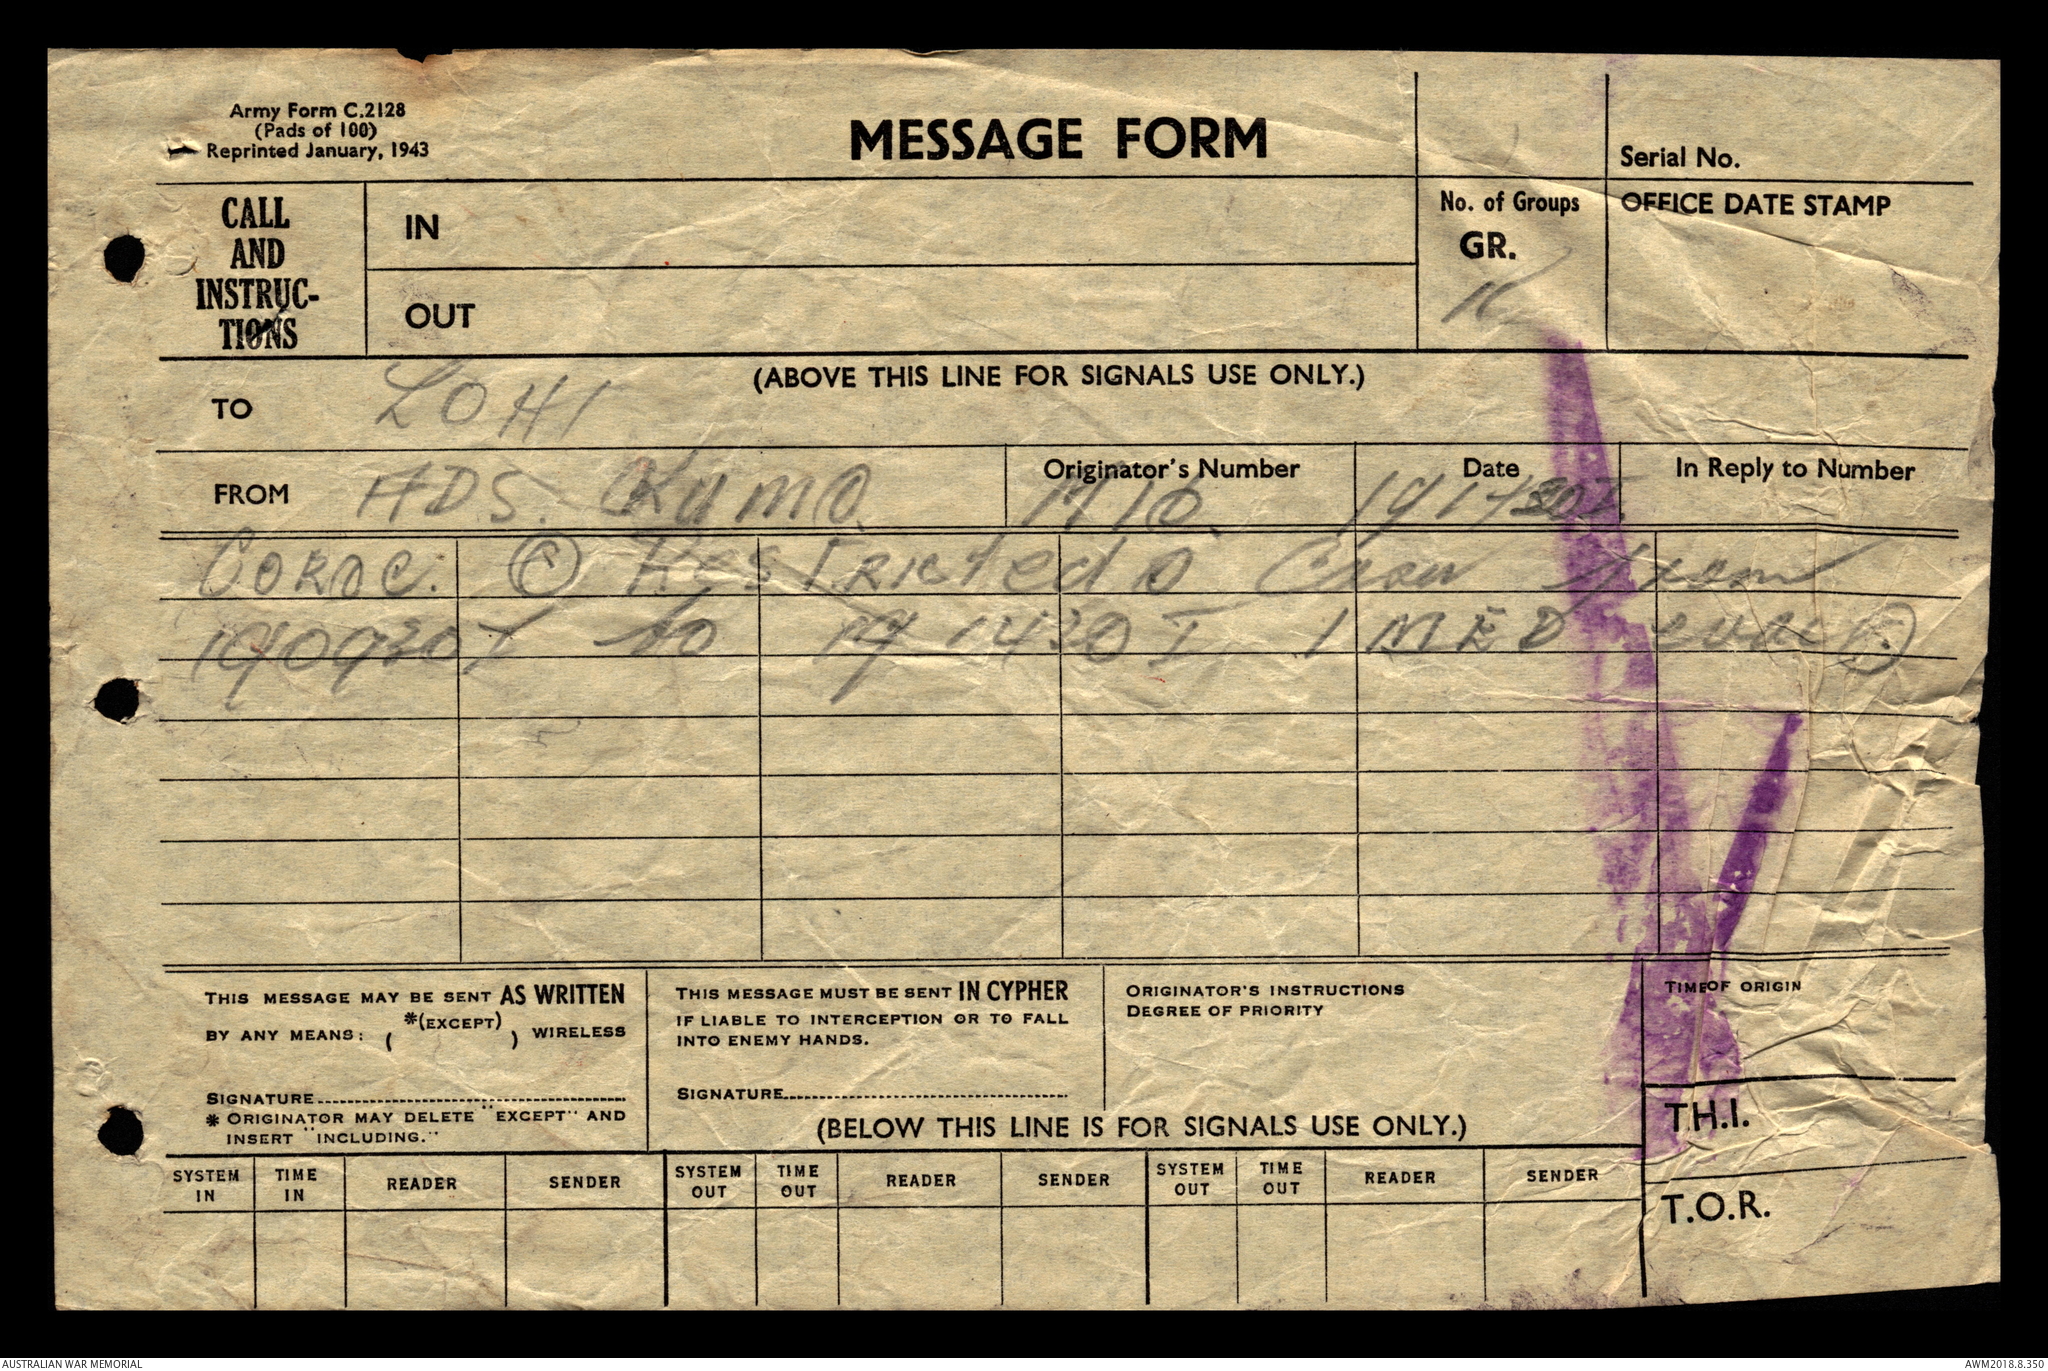 Army Form C.2128
(Pads of 100)
Reprinted January, 1943
MESSAGE FORM
Serial No.
CALL
AND
INSTRUC-
TIONS
IN
OUT
No. of Groups
GR.
OFFICE DATE STAMP
(ABOVE THIS LINE FOR SIGNALS USE ONLY.)
TO LOHI
FROM ADS. KUMO.
Originator's Number M16.
Date 191430I
In Reply to Number
Restricted from
190930I to 191430I 1 MED
THIS MESSAGE MAY BE SENT AS WRITTEN
BY ANY MEANS: ( *(EXCEPT) ) WIRELESS
SIGNATURE
* ORIGINATOR MAY DELETE "EXCEPT" AND
INSERT "INCLUDING."
THIS MESSAGE MUST BE SENT IN CYPHER
IF LIABLE TO INTERCEPTION OR TO FALL
INTO ENEMY HANDS.
SIGNATURE
ORIGINATOR'S INSTRUCTIONS
DEGREE OF PRIORITY
TIME OF ORIGIN
T.H.I.
T.O.R.
(BELOW THIS LINE IS FOR SIGNALS USE ONLY.)
SYSTEM IN TIME IN READER SENDER SYSTEM OUT TIME OUT READER SENDER SYSTEM OUT TIME OUT READER SENDER
AUSTRALIAN WAR MEMORIAL
AWM2018.8.350